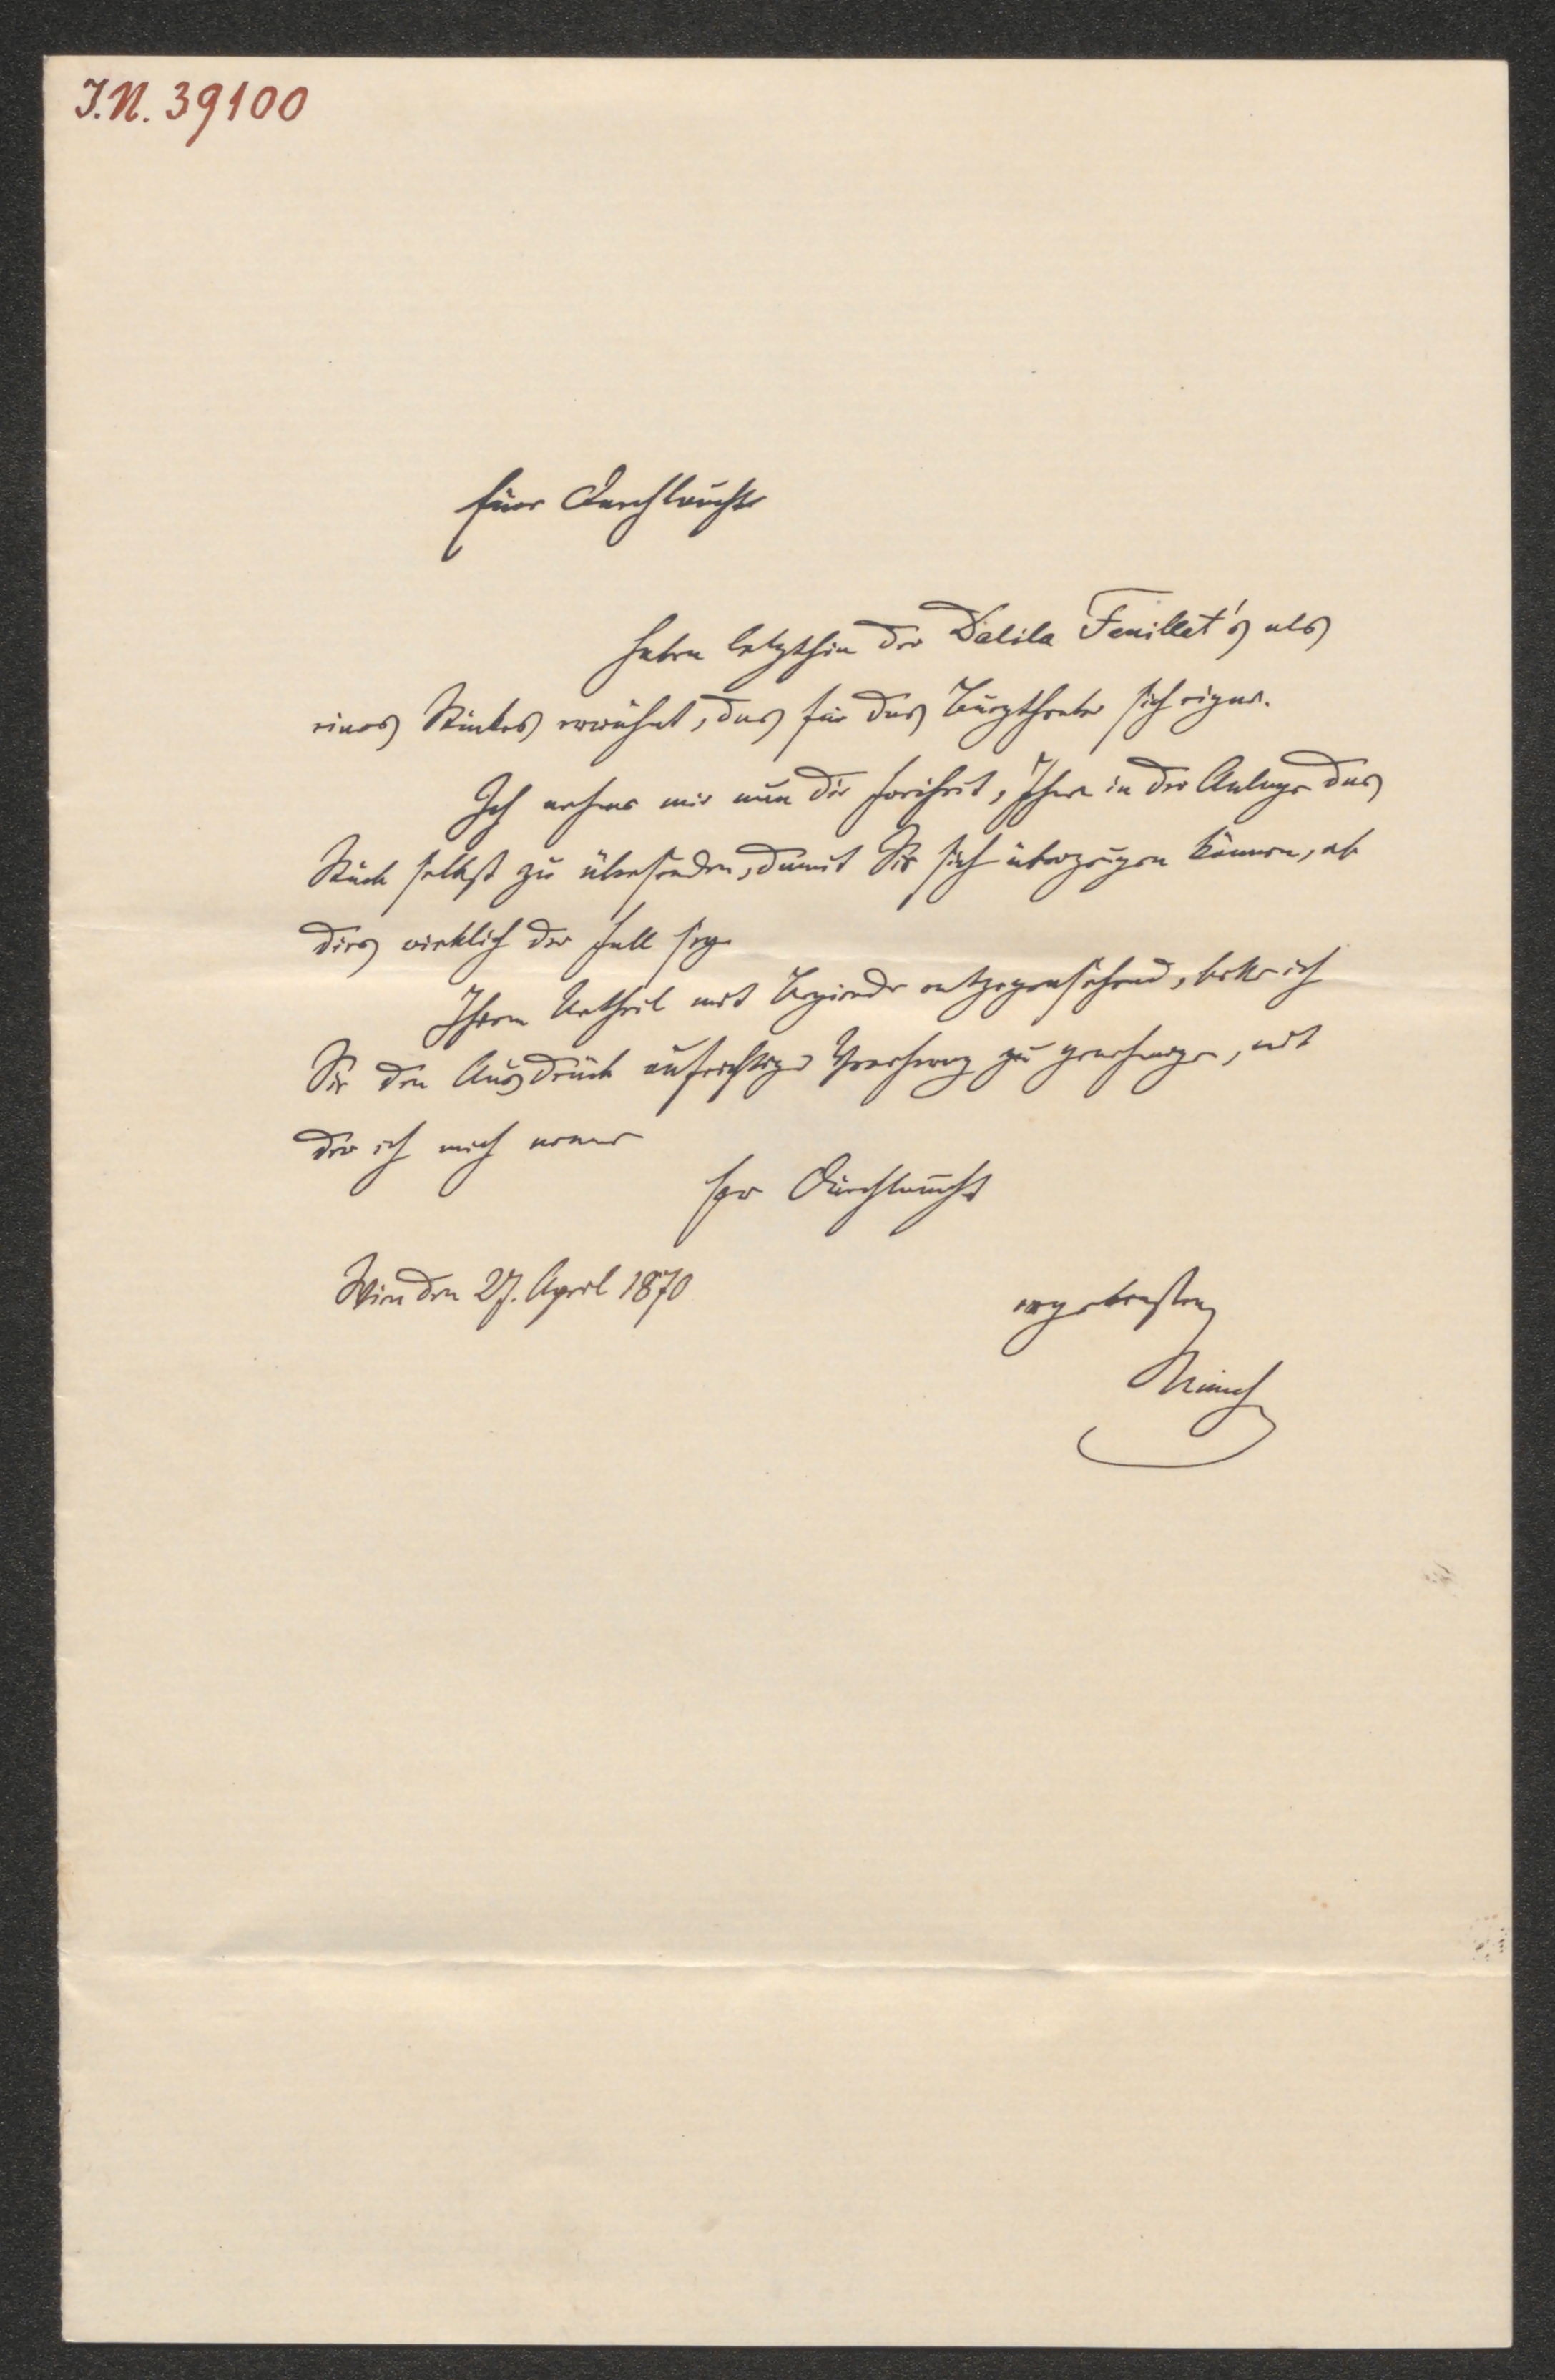 I.N. 39100
Euer Durchlaucht
haben letzthin der Dalila Feuillet's als
eines Stückes erwähnt, das für das Burgtheater sich eigne.
Ich nehme mir nun die Freiheit, Ihnen in der Anlage das
Stück selbst zu übersenden, damit Sie sich überzeugen können, ob
dies wirklich der Fall sey.
Ihrem Urtheil mit Begierde entgegensehend, bitte ich
Sie den Ausdruck aufrichtiger Verehrung zu genehmigen, mit
der ich mich nenne
Euer Durchlaucht
Wien den 27. April 1870
ergebensten
Münch